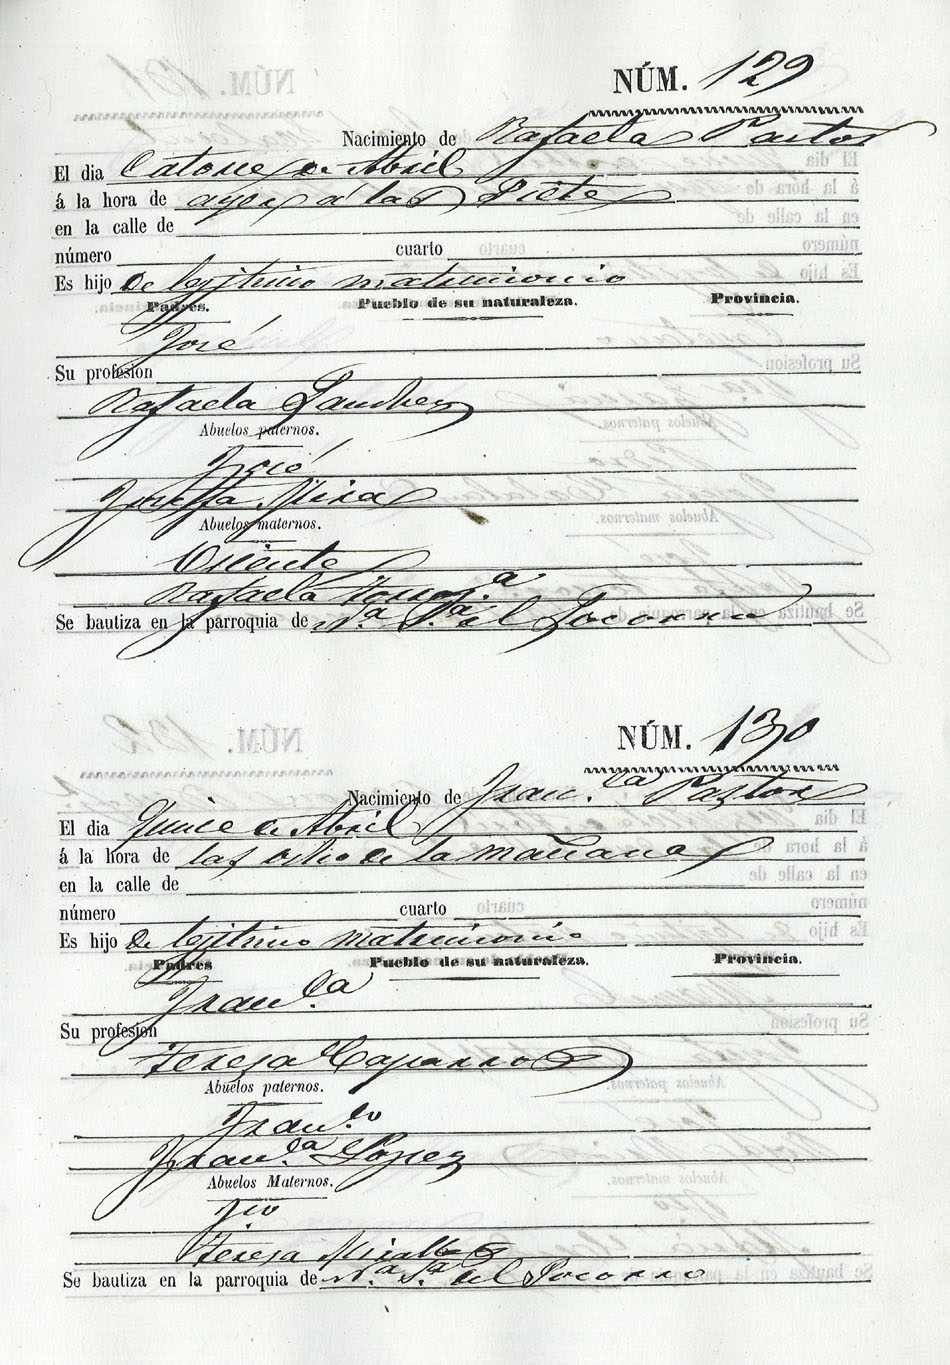 NÚM. 129
Nacimiento de Rafaela Pastor
El dia Catorce de Abril
á la hora de ayer á las Siete
en la calle de
número cuarto
Es hijo de lejitimo matrimonio
Padres. Pueblo de su naturaleza. Provincia.
José
Su profesion
Rafaela Sanchez
Abuelos paternos.
José
Josefa Mira
Abuelos maternos.
Vicente
Rafaela
Se bautiza en la parroquia de N.a S.a del Socorro
NÚM. 130
Nacimiento de Fran.ca Pastor
El dia Quince de Abril
á la hora de las ocho de la mañana
en la calle de
número cuarto
Es hijo de lejitimo matrimonio
Padres Pueblo de su naturaleza. Provincia.
Fran.ca
Su profesion
Teresa Caparros
Abuelos paternos.
Fran.co
Fran.ca Lopez
Abuelos Maternos.
Teresa Miralles
Se bautiza en la parroquia de N.a S.a del Socorro